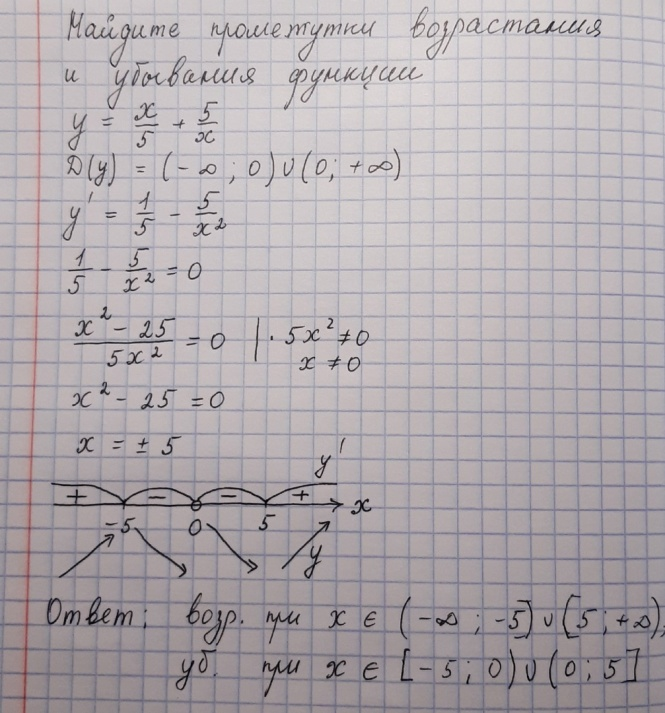 Найдите промежутки возрастания
и убывания функции
y = x/5 + 5/x
D(y) = (-∞ ; 0) ∪ (0; +∞)
y' = 1/5 - 5/x²
1/5 - 5/x² = 0
(x² - 25)/(5x²) = 0 | · 5x² ≠ 0
x ≠ 0
x² - 25 = 0
x = ± 5
y'
+ - - + x
-5 0 5
y
Ответ: возр. при x ∈ (-∞ ; -5] ∪ [5; +∞),
уб. при x ∈ [-5; 0) ∪ (0; 5]